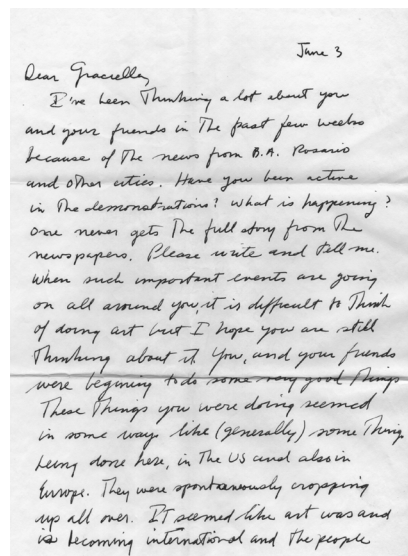 June 3
Dear Graciella,
I've been Thinking a lot about you
and your friends in The past few weeks
because of The news from B.A. Rosario
and other cities. Have you been active
in The demonstrations? What is happening?
One never gets The full story from The
newspapers. Please write and tell me.
When such important events are going
on all around you, it is difficult to Think
of doing art but I hope you are still
Thinking about it. You, and your friends
were beginning to do some very good Things
These Things you were doing seemed
in some ways like (generally) some Things
being done here, in The US and also in
Europe. They were spontaneously cropping
up all over. IT seemed like art was and
is becoming international and The people